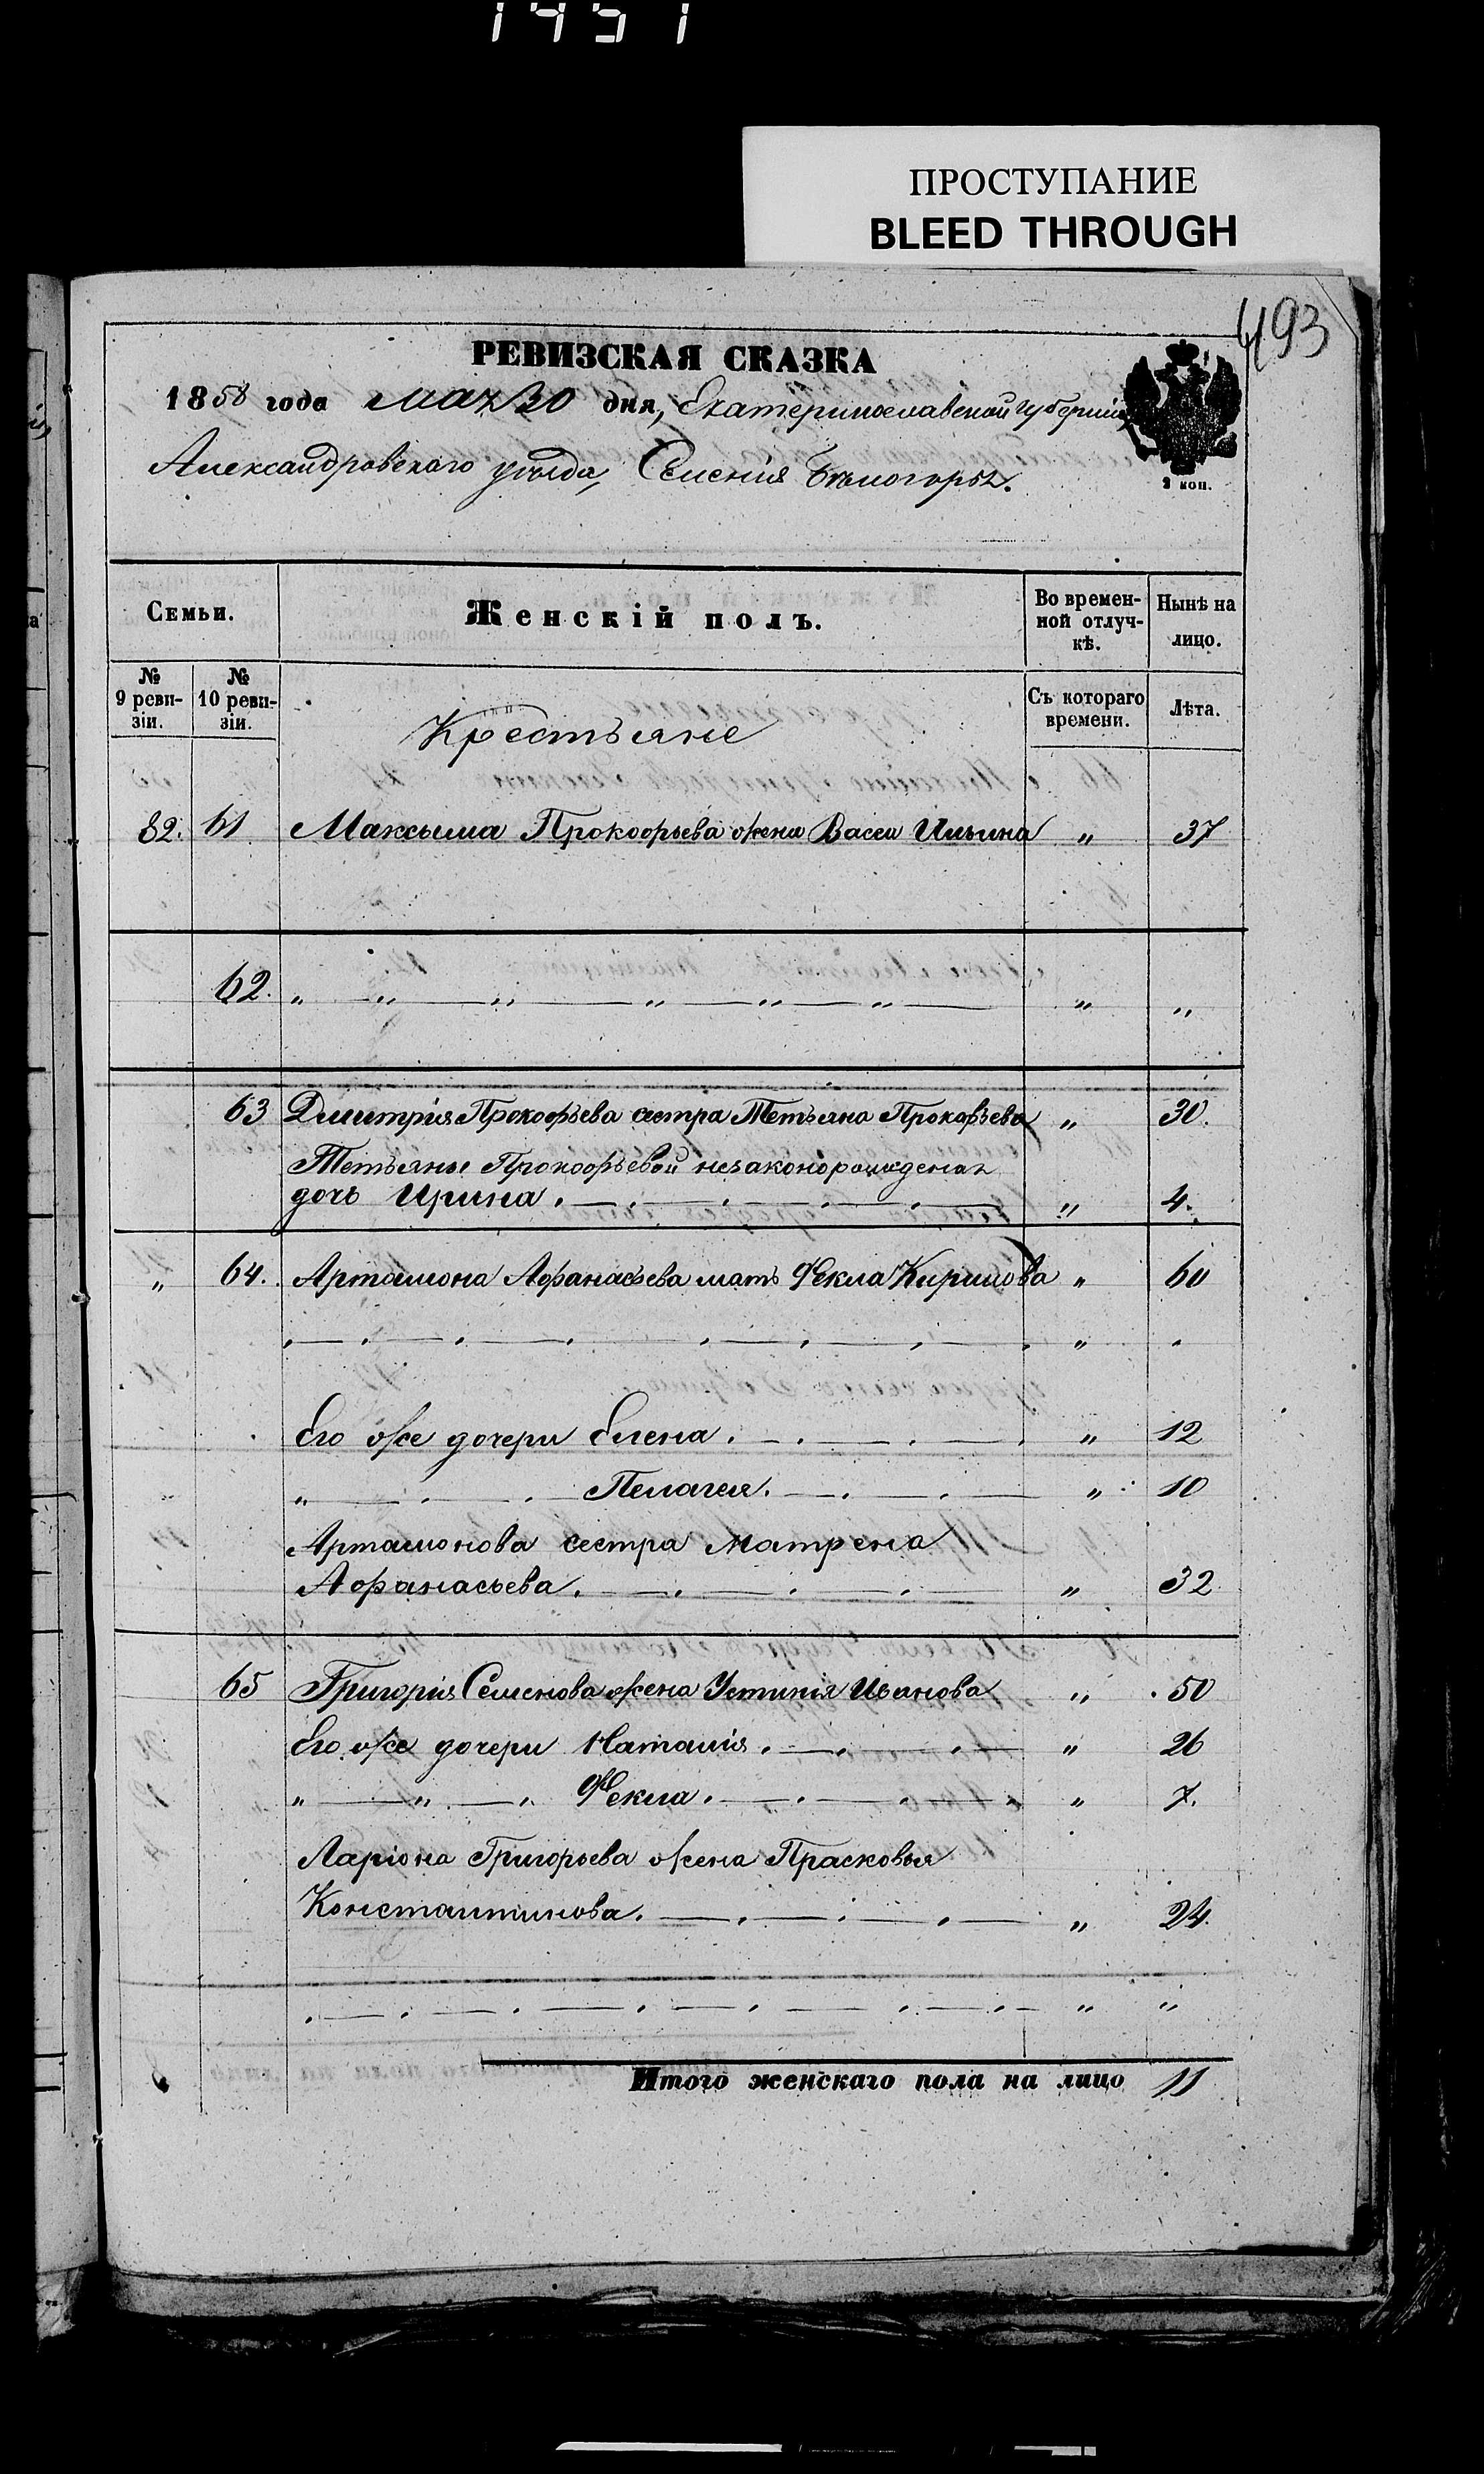 1451
ПРОСТУПАНИЕ
BLEED THROUGH
493
РЕВИЗСКАЯ СКАЗКА
1858 года Мая 30 дня, Екатеринославской губернии,
Александровскаго уѣзда, Селенія Бѣлогорья.
2 коп.
Семьи. Женскій полъ. Во времен-ной отлуч-кѣ. Нынѣ на лицо.
№ 9 реви-зіи. № 10 реви-зіи. Съ котораго времени. Лѣта.
Крестьяне
82. 61 Максыма Прокофьева жена Васса Ильина " 37
62. " — " — " — " — " — " — " "
63 Дмитрія Прокофьева сестра Тетьяна Прокофьева " 30.
Тетьяны Прокофьевой незаконорожденая
дочь Ирина. — . — . — . — . — " 4.
" 64. Артамона Афанасьева мать Фекла Кирилова " 60
. — . — . — . — . — . — . — . " .
Его же дочери Елена. — . — . — . " 12
" — . — . Пелагея. — . — . — " 10
Артамонова сестра Матрена
Афанасьева. — . — . — . — " 32
65 Григорія Семенова жена Устинія Иванова " 50
Его же дочери Наталія. — . — . — " 26
" — " — . Фекла. — . — . — . " 7.
Ларіона Григорьева жена Прасковья
Константинова. — . — . — . — " 24.
. — . — . — . — . — . — . — " "
Итого женскаго пола на лицо 11